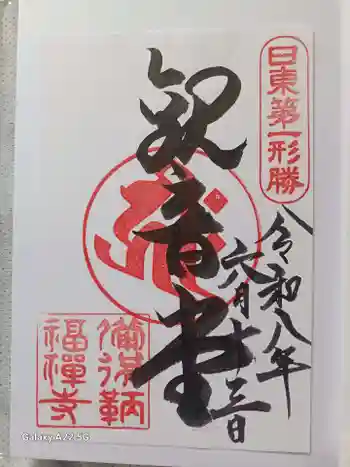 日東第一形勝
令和八年
六月十三日
観音堂
備後鞆
福禅寺
Galaxy A22 5G